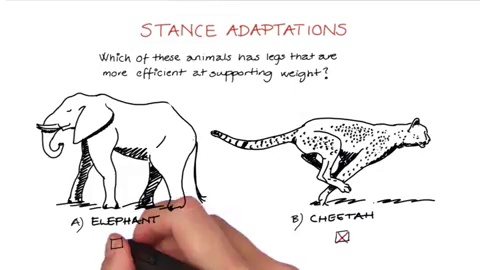 STANCE ADAPTATIONS
Which of these animals has legs that are
more efficient at supporting weight?
A) ELEPHANT
B) CHEETAH